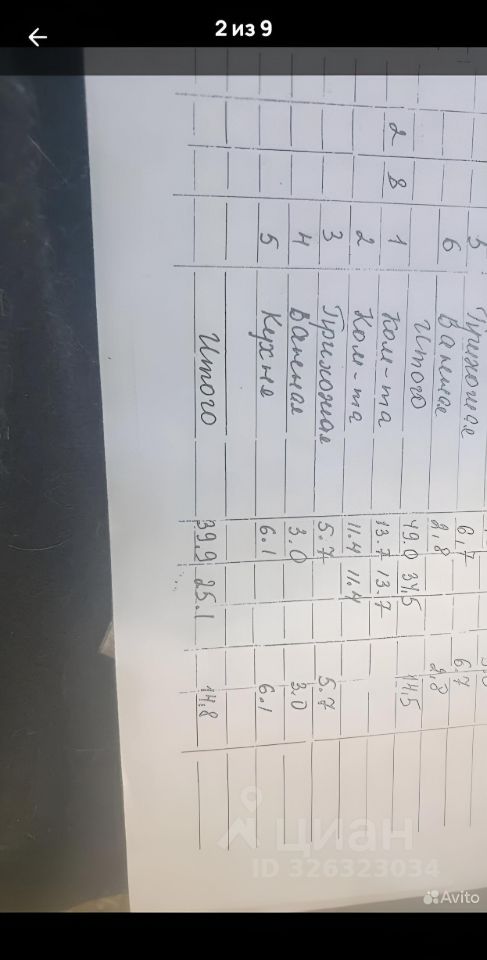 2 из 9
5 Прихожая 6,7 6.7
6 Ванная 2,8 2,8
Итого 49.0 34,5 14,5
2 8 1 Ком-та 13.7 13.7
2 Ком-та 11.4 11.4
3 Прихожая 5.7 5.7
4 Ванная 3.0 3.0
5 Кухня 6.1 6.1
Итого 39.9 25.1 14,8
циан
ID 326323034
Avito